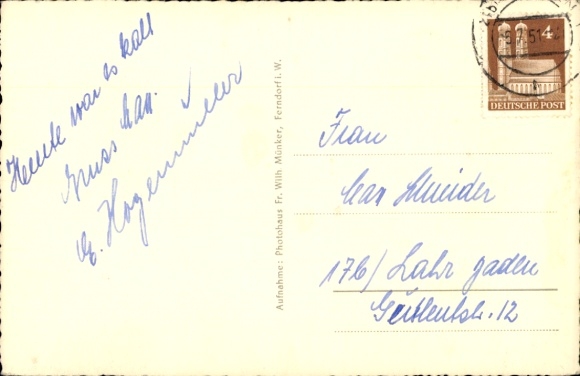 Heute war es kalt
Gruss Max.
Hogenmüller
Aufnahme: Photohaus Fr. Wilh. Münker, Ferndorf i. W.
4
DEUTSCHE POST
5.7.51
Frau
Max Schneider
17b/ Lahr Baden
12